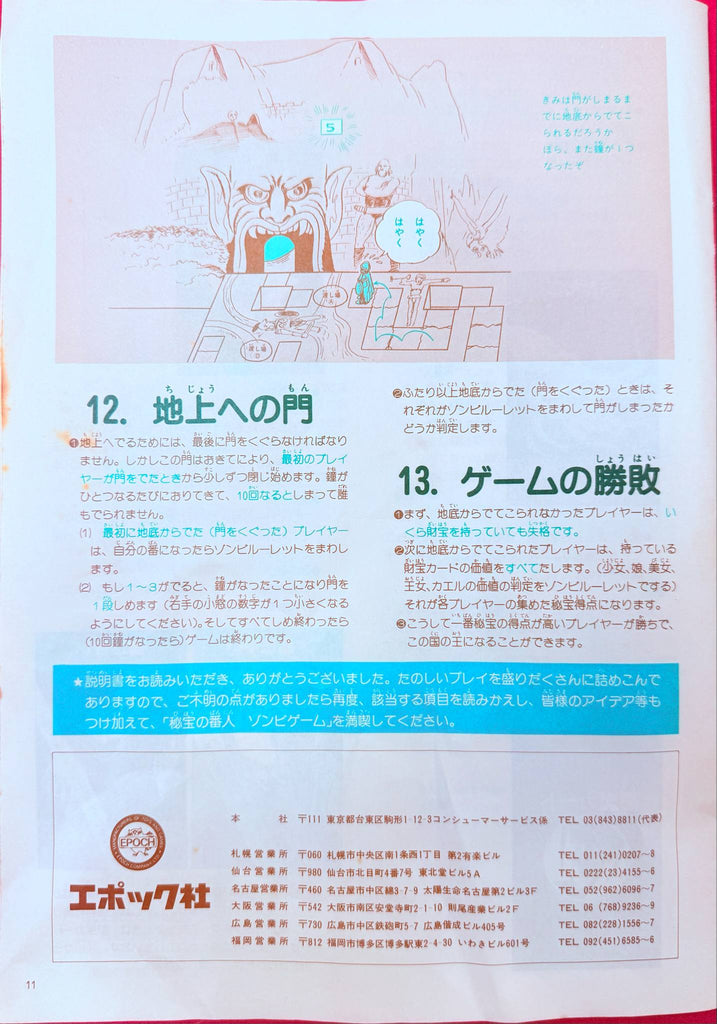 きみは門がしまるま
でに地底からでてこ
られるだろうか
ほら、また鐘が1つ
なったぞ
5
はやく
はやく
渡し場
渡し場
12. 地上への門
❶地上へでるためには、最後に門をくぐらなければなり
ません。しかしこの門はおきてにより、最初のプレイ
ヤーが門をでたときから少しずつ閉じ始めます。鐘が
ひとつなるたびにおりてきて、10回なるとしまって誰
もでられません。
(1) 最初に地底からでた（門をくぐった）プレイヤー
は、自分の番になったらゾンビルーレットをまわし
ます。
(2) もし1～3がでると、鐘がなったことになり門を
1段しめます（右手の小窓の数字が1つ小さくなる
ようにしてください）。そしてすべてしめ終わったら
(10回鐘がなったら)ゲームは終わりです。
❷ふたり以上地底からでた（門をくぐった）ときは、そ
れぞれがゾンビルーレットをまわして門がしまったか
どうか判定します。
13. ゲームの勝敗
❶まず、地底からでてこられなかったプレイヤーは、い
くら財宝を持っていても失格です。
❷次に地底からでてこられたプレイヤーは、持っている
財宝カードの価値をすべてたします。（少女、娘、美女、
王女、カエルの価値の判定をゾンビルーレットでする）
それが各プレイヤーの集めた秘宝得点になります。
❸こうして一番秘宝の得点が高いプレイヤーが勝ちで、
この国の王になることができます。
★説明書をお読みいただき、ありがとうございました。たのしいプレイを盛りだくさんに詰めこんで
ありますので、ご不明の点がありましたら再度、該当する項目を読みかえし、皆様のアイデア等も
つけ加えて、「秘宝の番人 ゾンビゲーム」を満喫してください。
EPOCH
エポック社
本 社 〒111 東京都台東区駒形1-12-3コンシューマーサービス係 TEL 03(843)8811(代表)
札幌営業所 〒060 札幌市中央区南1条西1丁目 第2有楽ビル TEL 011(241)0207～8
仙台営業所 〒980 仙台市北目町4番7号 東北堂ビル5A TEL 0222(23)4155～6
名古屋営業所 〒460 名古屋市中区錦3-7-9 太陽生命名古屋第2ビル3F TEL 052(962)6096～7
大阪営業所 〒542 大阪市南区安堂寺町2-1-10 則尾産業ビル2F TEL 06 (768)9236～9
広島営業所 〒730 広島市中区鉄砲町5-7 広島偕成ビル405号 TEL 082(228)1556～7
福岡営業所 〒812 福岡市博多区博多駅東2-4-30 いわきビル601号 TEL 092(451)6585～6
11